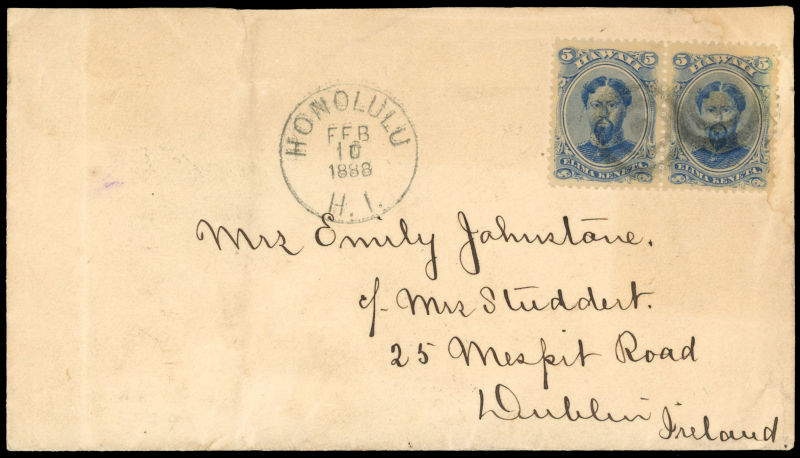 5 HAWAII 5
ELIMA KENETA.
5 HAWAII 5
ELIMA KENETA.
HONOLULU
FEB
10
1888
H. I.
Mrs Emily Johnstone.
c/- Mrs Studdert.
25 Mespit Road
Dublin
Ireland.